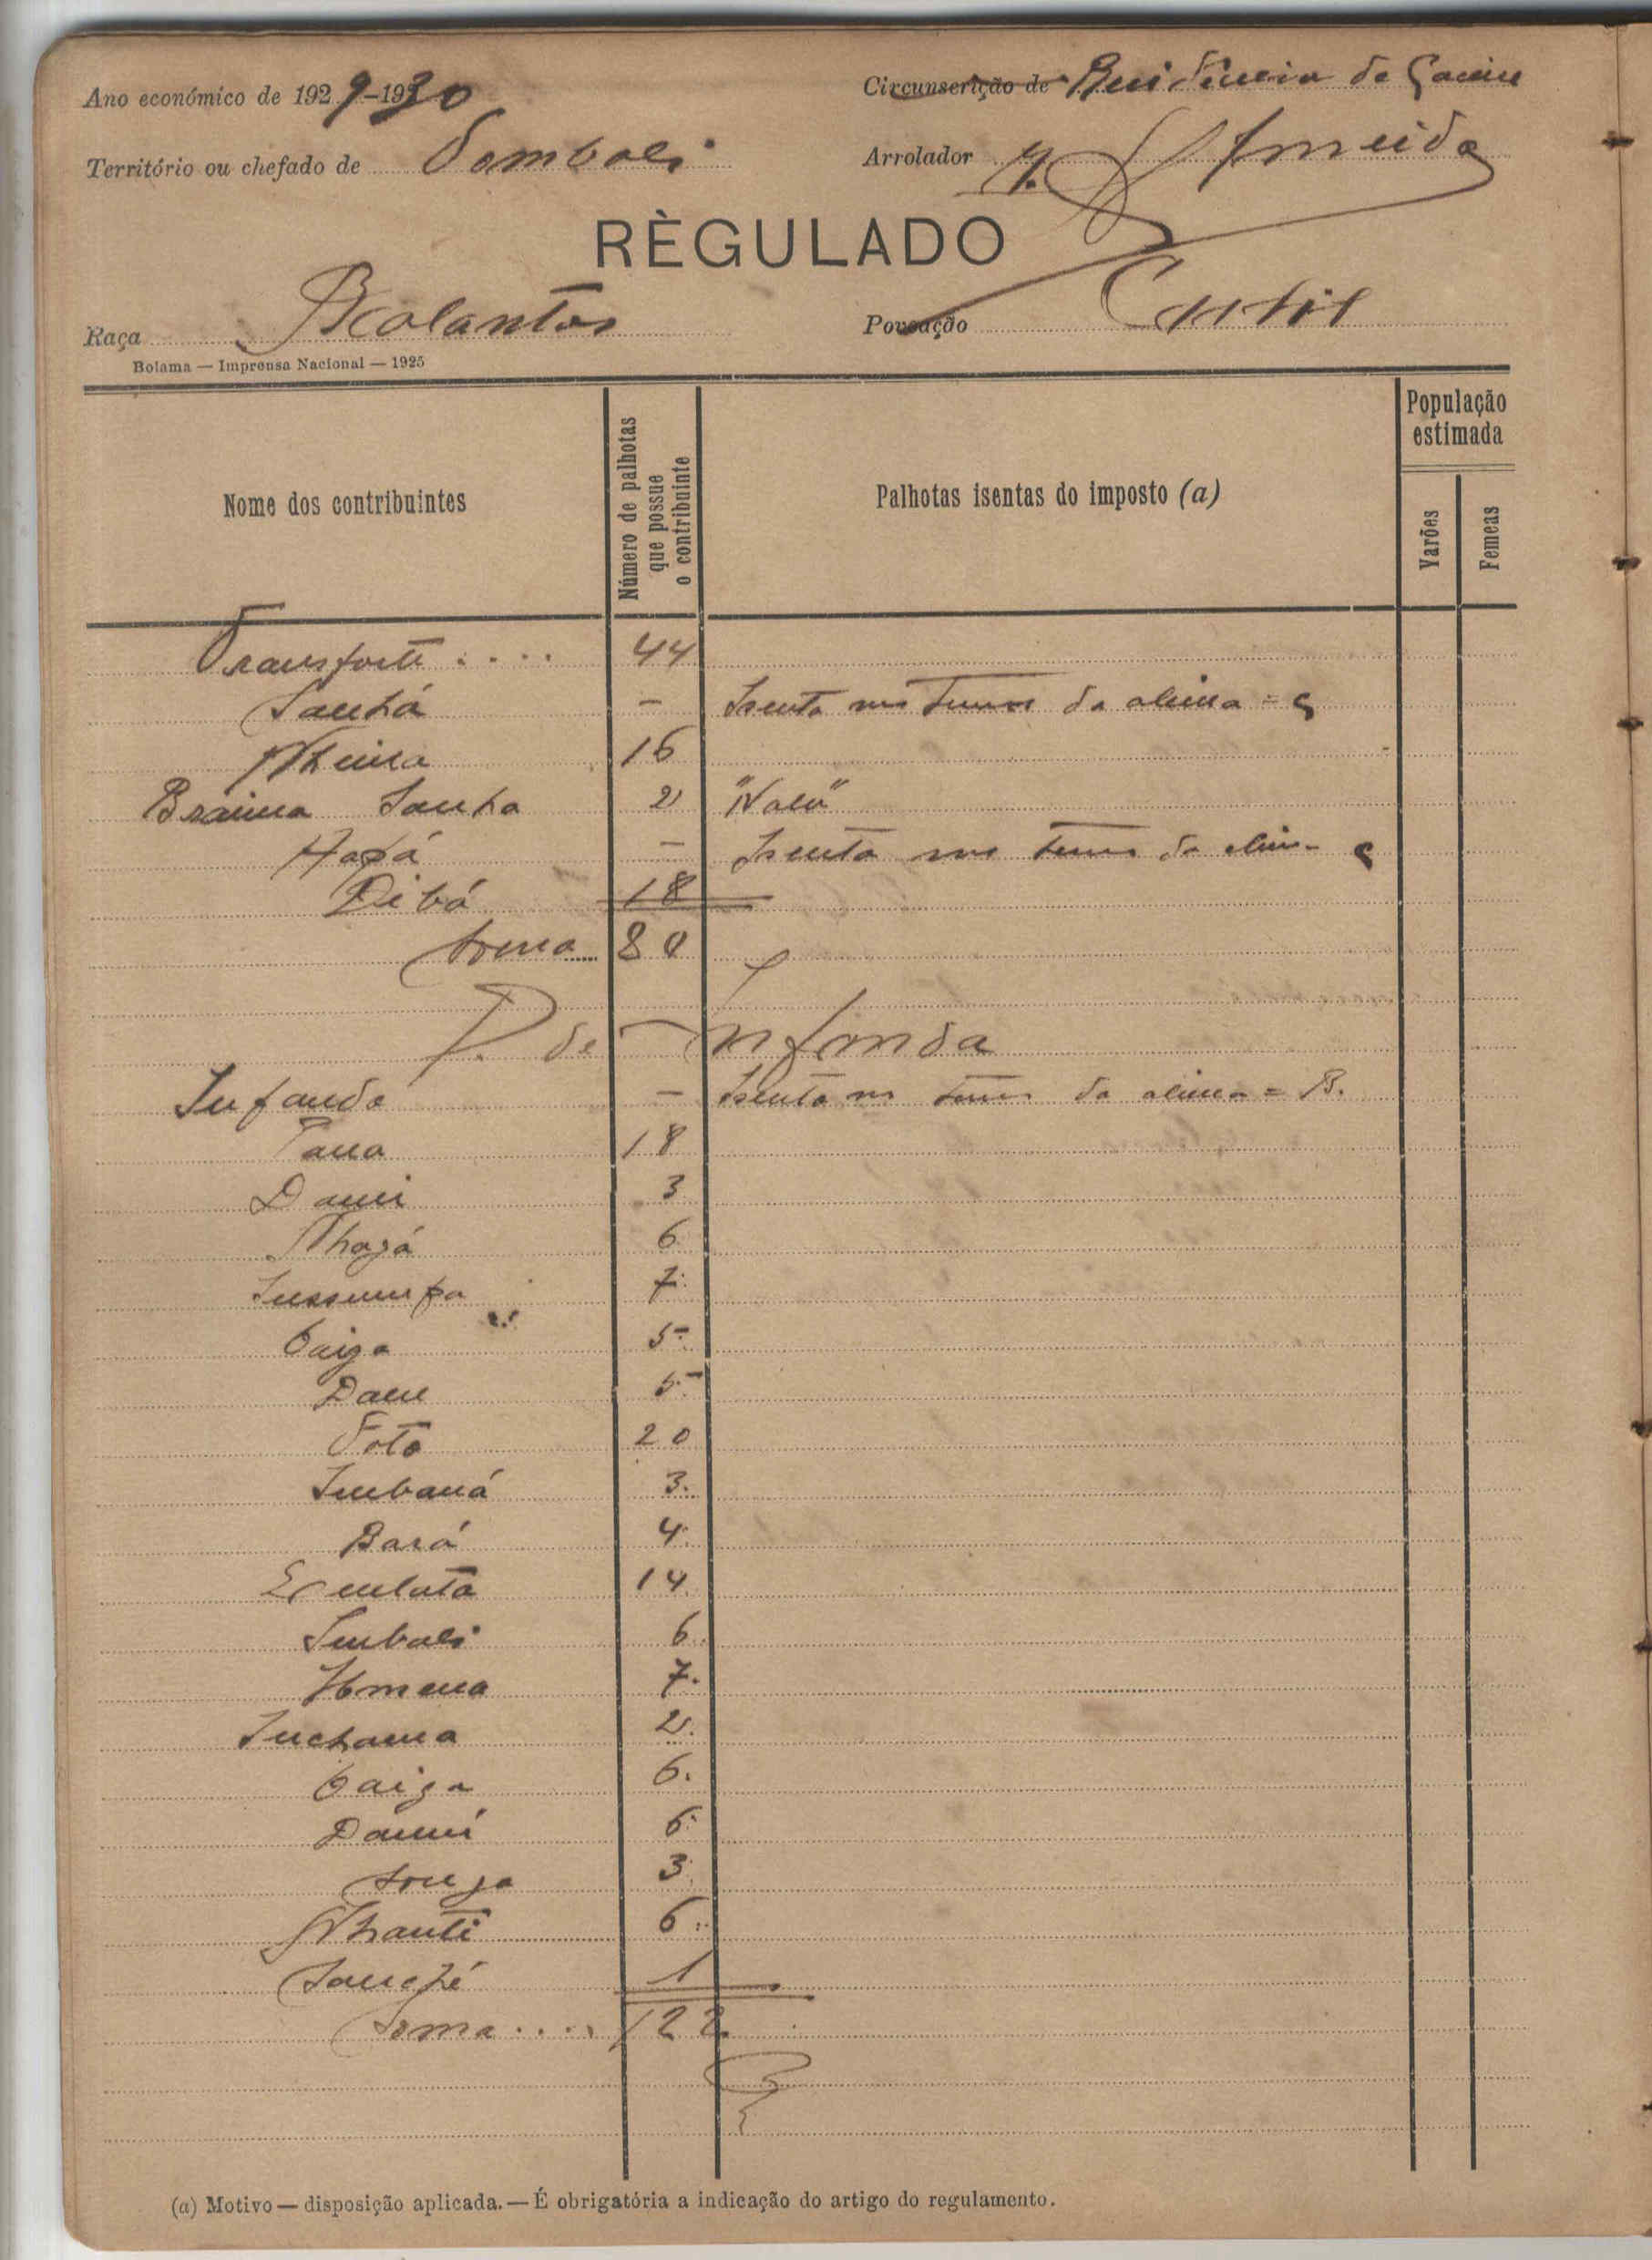 Ano económico de 1929-1930
Circunscrição de Residencia de Cacine
Território ou chefado de Tombali
Arrolador Y. Almeida
RÈGULADO
Raça Balantas
Povoação Cantil
Bolama — Imprensa Nacional — 1925
Nome dos contribuintes
Número de palhotas que possue o contribuinte
Palhotas isentas do imposto (a)
População estimada
Varões
Femeas
Transporte .... 44
Sanhá — Isenta nos termos da alinea = c
N'heina 16
Braima Sanha 2 "Nalú"
— Isenta nos termos da alinea c
Dibá 18
Soma 80
P. de Infanda
Infanda — Isenta nos termos da alinea = B.
Tana 18
Dami 3
6
7
Caiga 5
Dam 5
Toto 20
Imbaná 3
Bará 4
14
Imbali 6
7
Inchama 2
Caiga 6
Damni 6
Songa 3
N'hanti 6
1
Soma .... 122
(a) Motivo — disposição aplicada. — É obrigatória a indicação do artigo do regulamento.